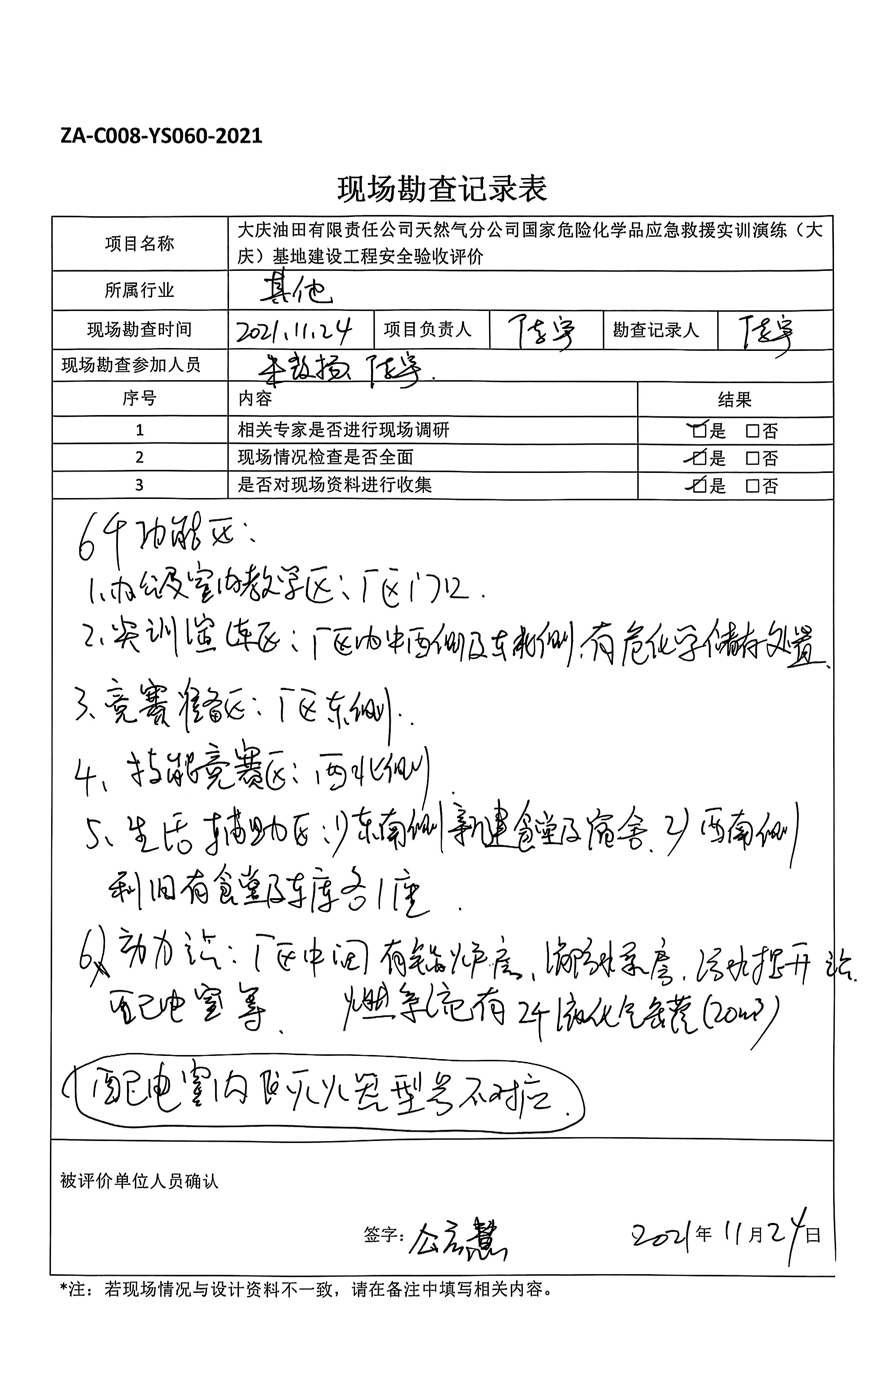 ZA-C008-YS060-2021
现场勘查记录表
项目名称 大庆油田有限责任公司天然气分公司国家危险化学品应急救援实训演练（大
庆）基地建设工程安全验收评价
所属行业 其他
现场勘查时间 2021.11.24 项目负责人 勘查记录人
现场勘查参加人员
序号 内容 结果
1 相关专家是否进行现场调研 ☑是 □否
2 现场情况检查是否全面 ☑是 □否
3 是否对现场资料进行收集 ☑是 □否
6个功能区：
1、办公及室内教学区：厂区门口.
2、实训演练区：厂区内中西侧及东北侧.有危化学储存处置.
3、竞赛准备区：厂区东侧.
4、技能竞赛区：西北侧.
5、生活辅助区：1)东南侧新建食堂及宿舍、2)西南侧
利旧有食堂及车库各1座.
6、动力站：厂区中间有锅炉房、消防水泵房、污水提升站.
配电室等. 燃气系统有2个液化气储罐(20m³)
配电室内 灭火器型号不对应.
被评价单位人员确认
签字： 2021年11月24日
*注：若现场情况与设计资料不一致，请在备注中填写相关内容。